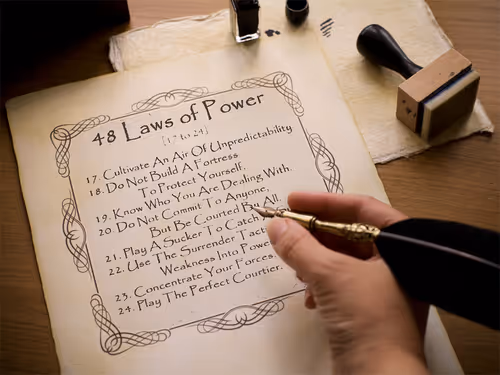 48 Laws of Power
[17 to 24]
17. Cultivate An Air Of Unpredictability
18. Do Not Build A Fortress
To Protect Yourself,
19. Know Who You Are Dealing With.
20. Do Not Commit To Anyone,
But Be Courted By All.
21. Play A Sucker To Catch A
22. Use The Surrender Tactic
Weakness Into Power
23. Concentrate Your Forces.
24. Play The Perfect Courtier.